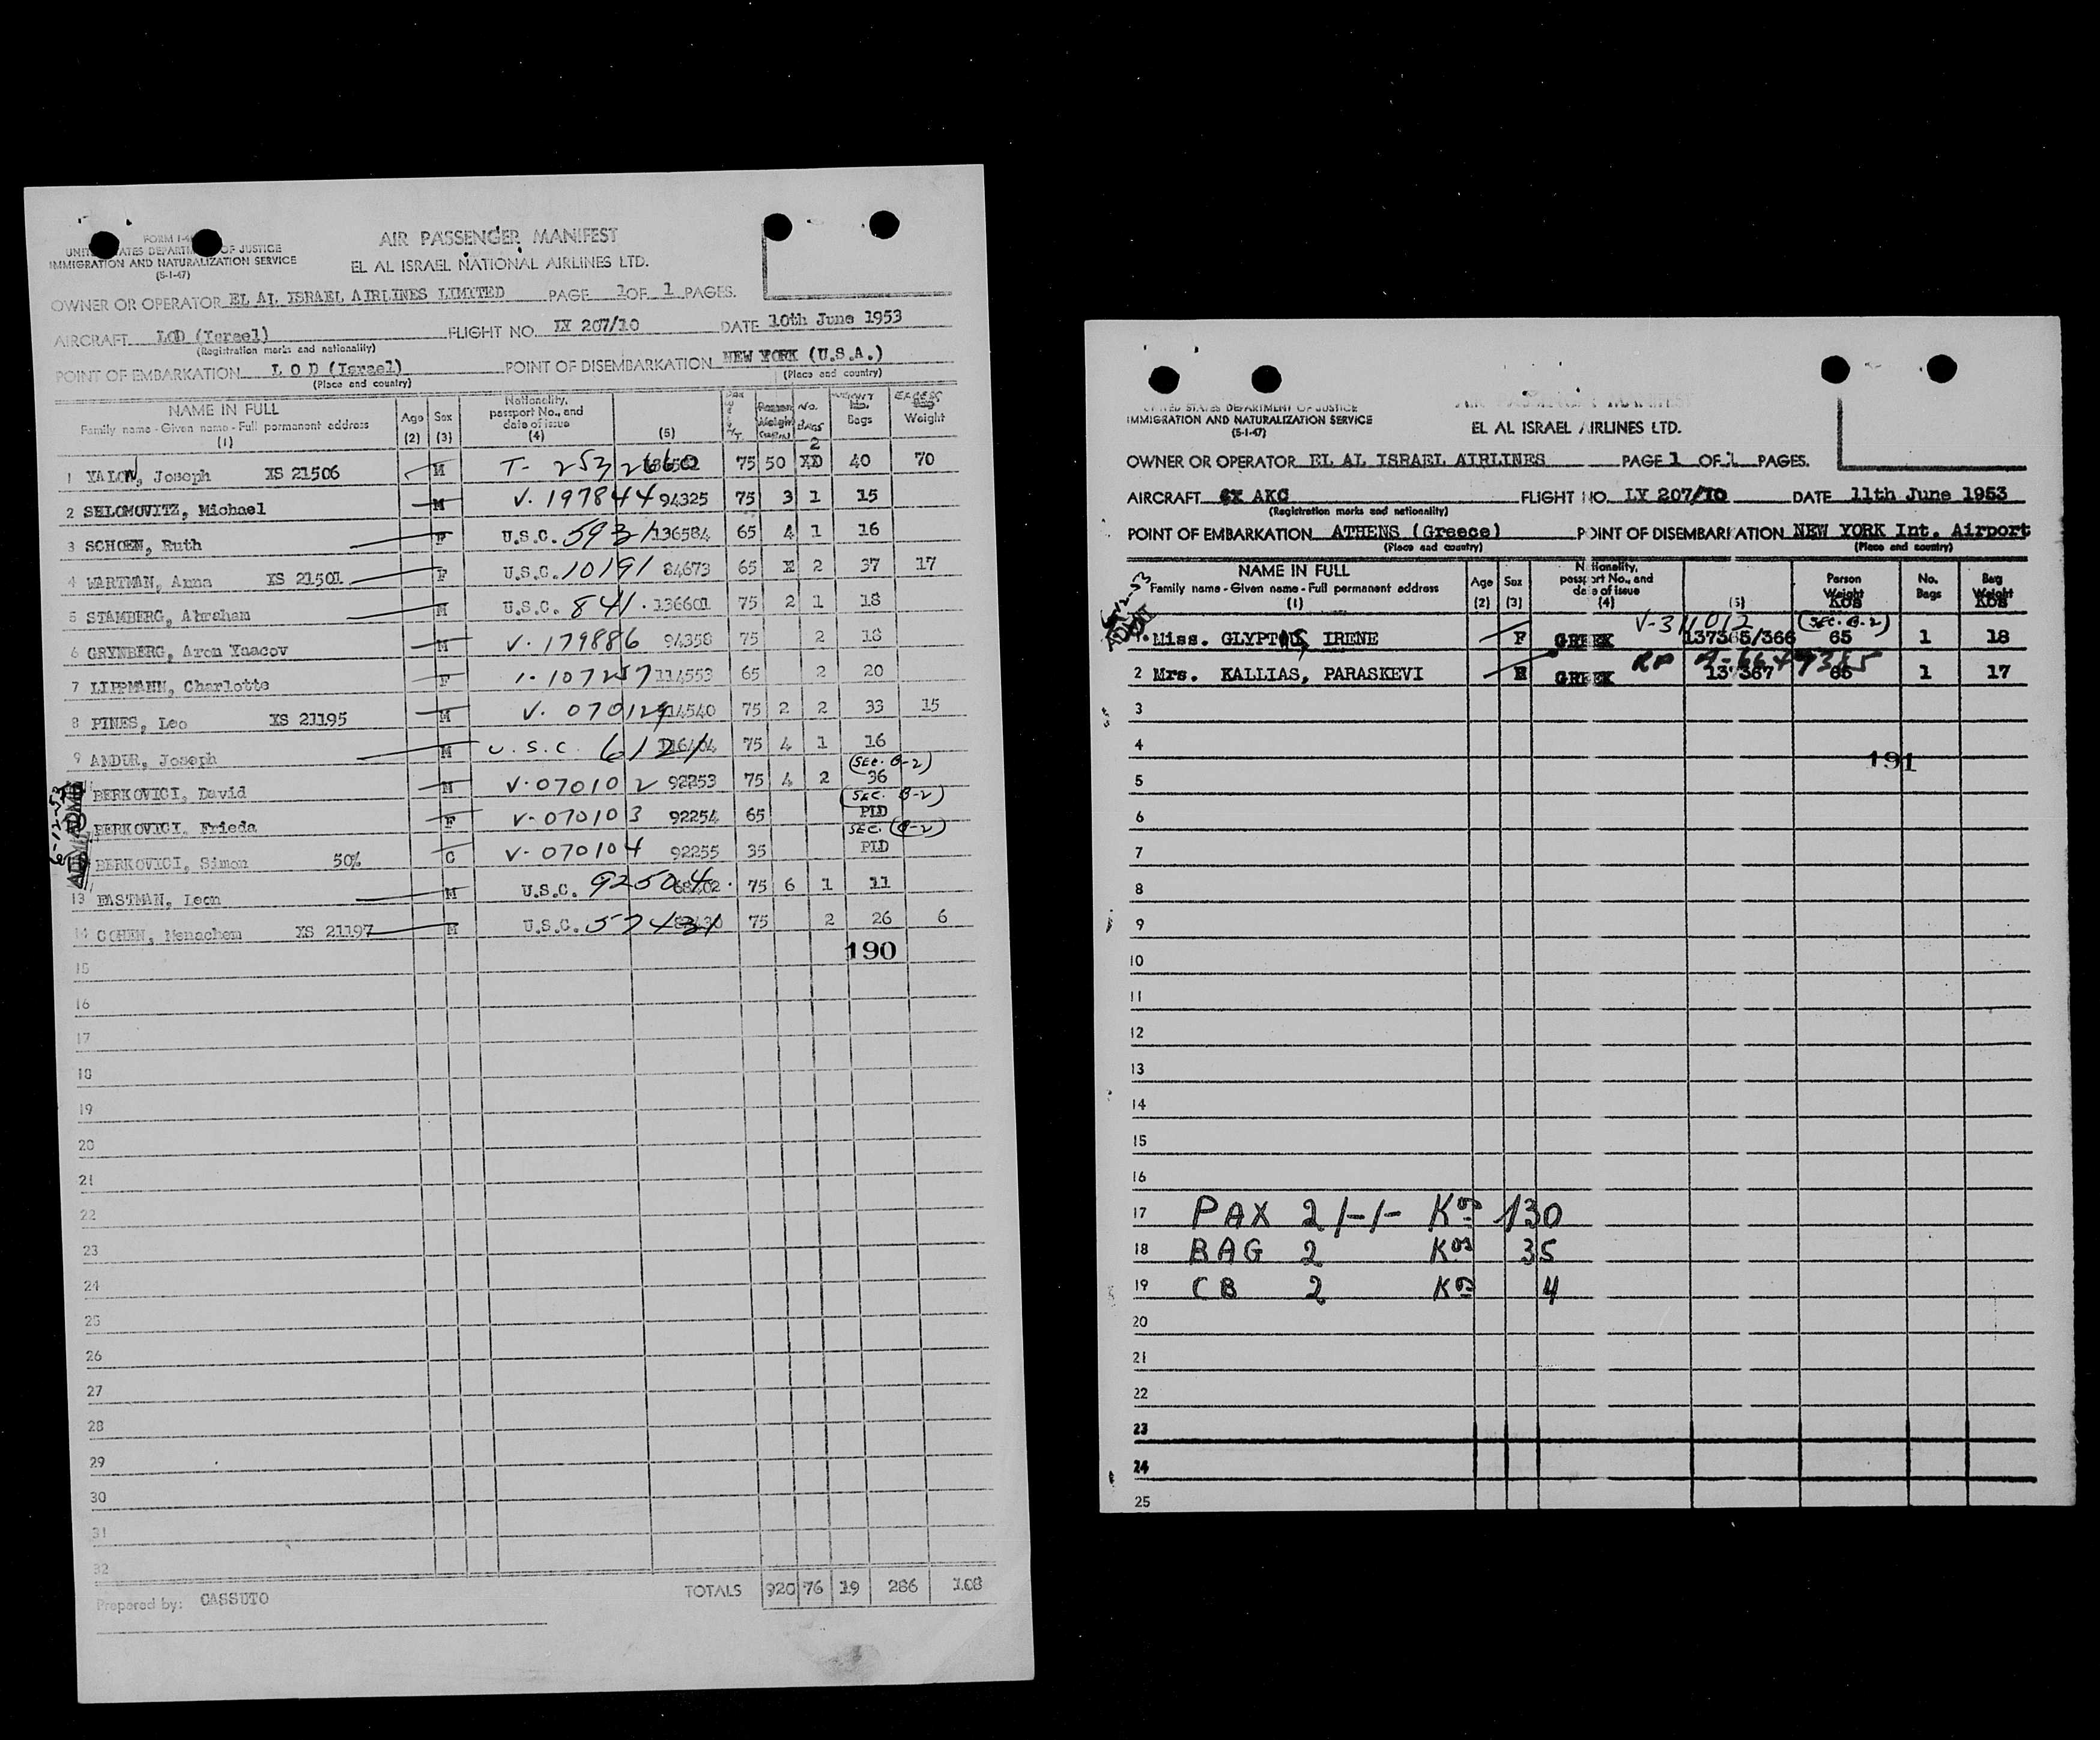 UNITED STATES DEPARTMENT OF JUSTICE
IMMIGRATION AND NATURALIZATION SERVICE
(5-1-47)
AIR PASSENGER MANIFEST
EL AL ISRAEL NATIONAL AIRLINES LTD.
OWNER OR OPERATOR EL AL ISRAEL AIRLINES LIMITED PAGE 1 OF 1 PAGES.
AIRCRAFT LOD (Israel) FLIGHT NO. LY 207/10 DATE 10th June 1953
(Registration marks and nationality)
POINT OF EMBARKATION L O D (Israel) POINT OF DISEMBARKATION NEW YORK (U.S.A.)
(Place and country) (Place and country)
NAME IN FULL
Family name - Given name - Full permanent address
(1)
Age (2)
Sex (3)
Nationality, passport No., and date of issue (4)
(5)
No. Bags
Weight
1 YALON, Joseph XS 21506 M T- 253 2660 75 50 2 40 70
2 SHLOMOVITZ, Michael M V. 197844 94325 75 3 1 15
3 SCHOEN, Ruth F U.S.C. 5931 136584 65 4 1 16
4 WARTMAN, Anna XS 21501 F U.S.C. 10191 84673 65 2 37 17
5 STAMBERG, Abraham M U.S.C. 841. 136601 75 2 1 18
6 GRYNBERG, Aron Yaacov M V. 179886 94358 75 2 18
7 LIPPMANN, Charlotte F 107257 114553 65 2 20
8 PINES, Leo XS 21195 M V. 070129 14540 75 2 2 33 15
9 AMDUR, Joseph M U.S.C. 6121 75 4 1 16
BERKOVICI, David M V-070102 92253 75 4 2 36 (SEC. B-2)
BERKOVICI, Frieda F V-070103 92254 65 PLD (SEC. B-2)
BERKOVICI, Simon 50% C V-070104 92255 35 PLD SEC. (B-2)
13 EASTMAN, Leon M U.S.C. 92504 75 6 1 11
14 COHEN, Menachem XS 21197 M U.S.C. 57431 75 2 26 6
190
6-12-53
ADMIT
15
16
17
18
19
20
21
22
23
24
25
26
27
28
29
30
31
32
TOTALS 920 76 19 286 108
Prepared by: CASSUTO
UNITED STATES DEPARTMENT OF JUSTICE
IMMIGRATION AND NATURALIZATION SERVICE
(5-1-47)
AIR PASSENGER MANIFEST
EL AL ISRAEL AIRLINES LTD.
OWNER OR OPERATOR EL AL ISRAEL AIRLINES PAGE 1 OF 1 PAGES.
AIRCRAFT 4X AKC FLIGHT NO. LY 207/10 DATE 11th June 1953
(Registration marks and nationality)
POINT OF EMBARKATION ATHENS (Greece) POINT OF DISEMBARKATION NEW YORK Int. Airport
(Place and country) (Place and country)
NAME IN FULL
Family name - Given name - Full permanent address
(1)
Age (2)
Sex (3)
Nationality, passport No., and date of issue (4)
(5)
Person Weight KGS
No. Bags
Bag Weight KGS
6-12-53
ADMIT
V-311012 (SEC. B-2)
Miss. GLYPTIS, IRENE F GREEK 137365/366 65 1 18
2 Mrs. KALLIAS, PARASKEVI GREEK 137367 65 1 17
3
4
191
5
6
7
8
9
10
11
12
13
14
15
16
17 PAX 2/-/- Kgs 130
18 BAG 2 Kgs 35
19 CB 2 Kgs 4
20
21
22
23
24
25